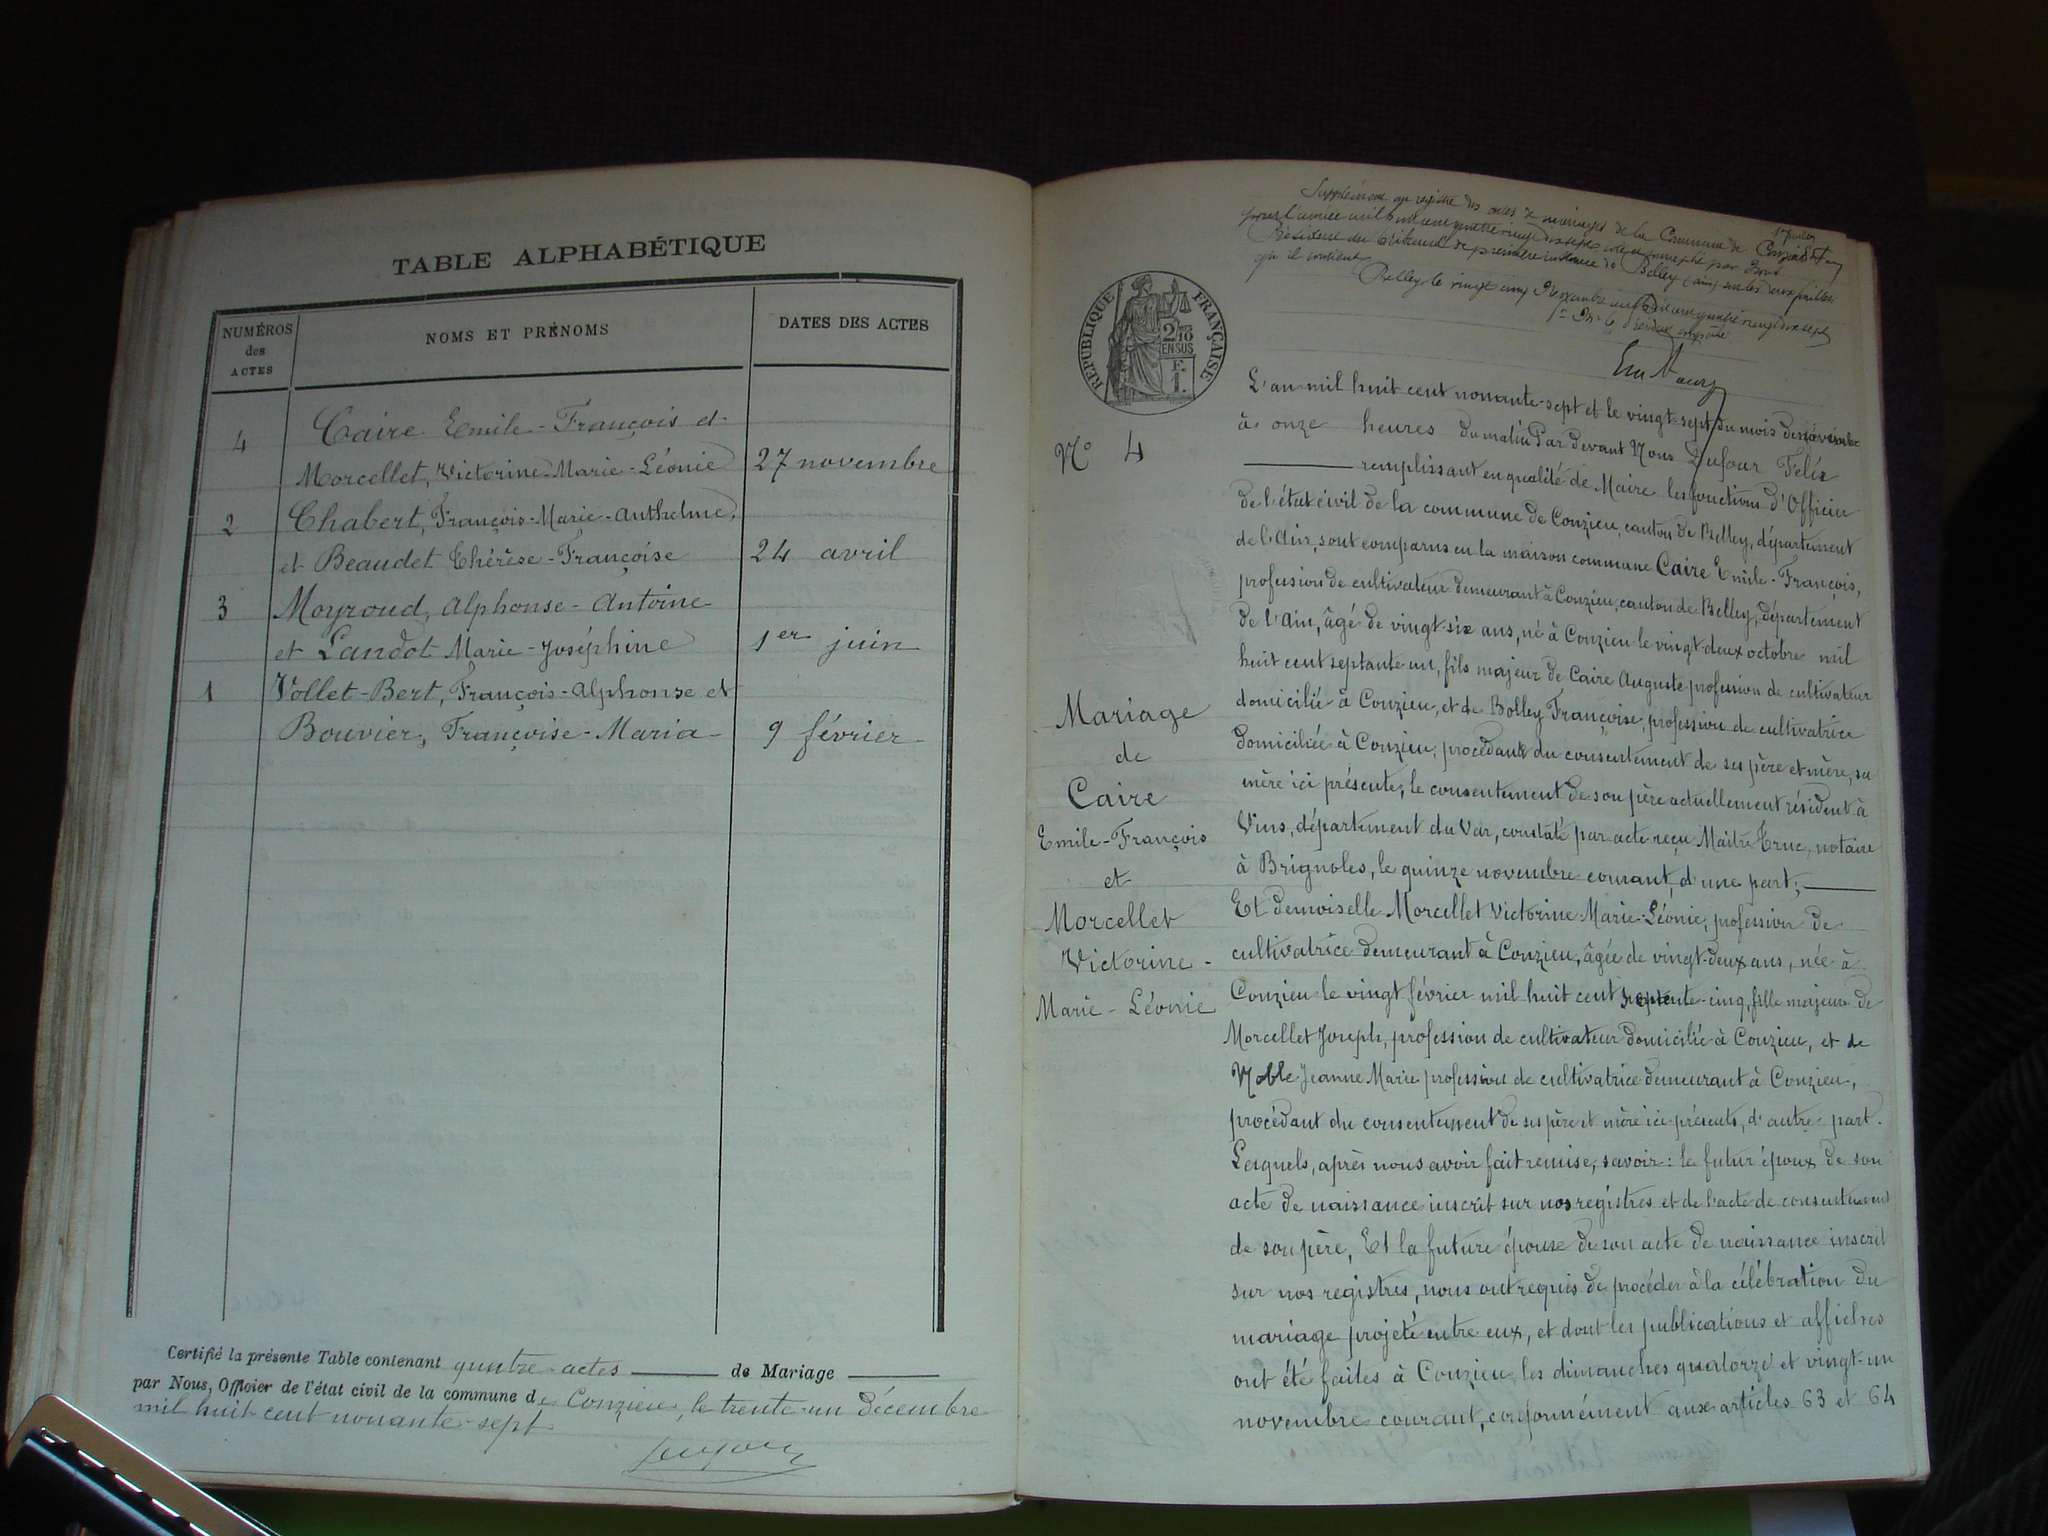 TABLE ALPHABÉTIQUE
NUMÉROS
des
ACTES
NOMS ET PRÉNOMS
DATES DES ACTES
4
Caire Emile-François et
Morcellet, Victorine-Marie-Léonie
27 novembre
2
Chabert, François-Marie-Anthelme,
et Beaudet Thérèse-Françoise
24 avril
3
Moyroud, Alphonse-Antoine
et Landot Marie-Joséphine
1er juin
1
Vollet-Bert, François-Alphonse et
Bouvier, Françoise-Maria
9 février
Certifié la présente Table contenant quatre actes de Mariage
par Nous, Officier de l'état civil de la commune de Conzieu, le trente-un décembre
mil huit cent nonante-sept
Supplément au registre des actes de mariages de la Commune de Conzieu
pour l'année mil huit cent quatre vingt dix sept coté et paraphé par Nous
Président du tribunal de première instance de Belley (Ain) sur les deux feuilles
qu'il contient
Belley le vingt cinq Novembre mil huit cent quatre vingt dix sept
RÉPUBLIQUE FRANÇAISE
2/10
EN SUS
F
1.
L'an mil huit cent nonante-sept et le vingt-sept du mois de novembre
à onze heures du matin Par devant Nous Dufour Felix
remplissant en qualité de Maire les fonctions d'Officier
de l'état civil de la commune de Conzieu, canton de Belley, département
de l'Ain, sont comparus en la maison commune Caire Emile-François,
profession de cultivateur demeurant à Conzieu, canton de Belley, département
de l'Ain, âgé de vingt-six ans, né à Conzieu le vingt-deux octobre mil
huit cent septante un, fils majeur de Caire Auguste profession de cultivateur
domicilié à Conzieu, et de Bolley Françoise, profession de cultivatrice
domiciliée à Conzieu, procédant du consentement de ses père et mère, sa
mère ici présente, le consentement de son père actuellement résident à
Vins, département du Var, constaté par acte reçu Maitre Truc, notaire
à Brignoles, le quinze novembre courant, d'une part;
Et demoiselle Morcellet Victorine Marie-Léonie, profession de
cultivatrice demeurant à Conzieu, âgée de vingt-deux ans, née à
Conzieu le vingt février mil huit cent septante-cinq, fille majeure de
Morcellet Joseph, profession de cultivateur domicilié à Conzieu, et de
Noble Jeanne Marie profession de cultivatrice demeurant à Conzieu,
procédant du consentement de ses père et mère ici présents, d'autre part.
Lesquels, après nous avoir fait remise, savoir: le futur époux de son
acte de naissance inscrit sur nos registres et de l'acte de consentement
de son père, Et la future épouse de son acte de naissance inscrit
sur nos registres, nous ont requis de procéder à la célébration du
mariage projeté entre eux, et dont les publications et affiches
ont été faites à Conzieu les dimanches quatorze et vingt-un
novembre courant, conformément aux articles 63 et 64
No 4
Mariage
de
Caire
Emile-François
et
Morcellet
Victorine-
Marie-Léonie